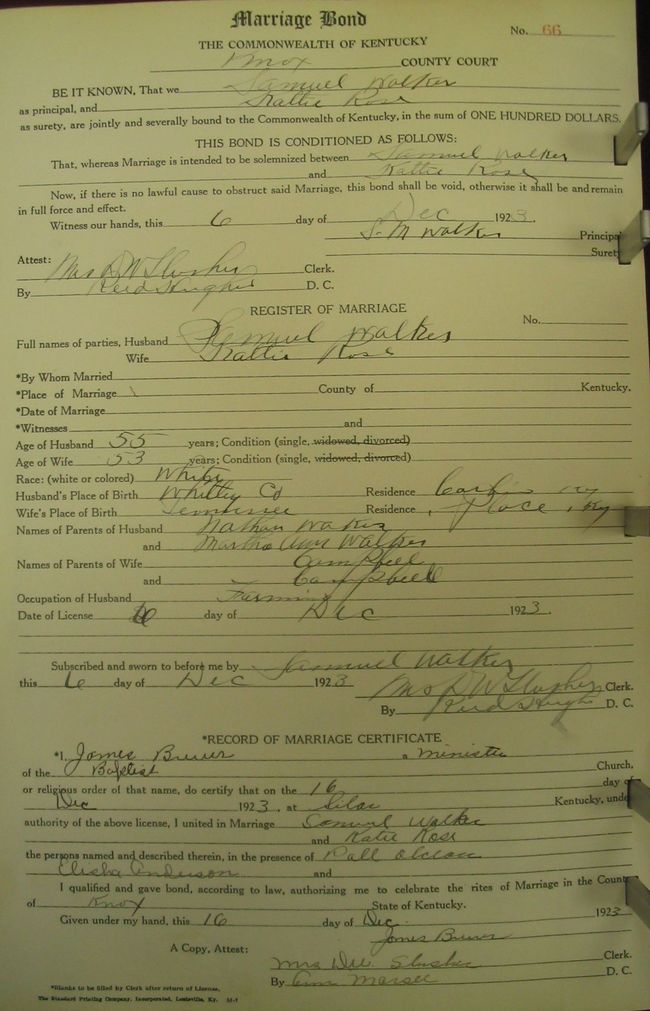 Marriage Bond
No. 66
THE COMMONWEALTH OF KENTUCKY
Knox COUNTY COURT
BE IT KNOWN, That we Samuel Walker
as principal, and Kattie Rose
as surety, are jointly and severally bound to the Commonwealth of Kentucky, in the sum of ONE HUNDRED DOLLARS.
THIS BOND IS CONDITIONED AS FOLLOWS:
That, whereas Marriage is intended to be solemnized between Samuel Walker
and Kattie Rose
Now, if there is no lawful cause to obstruct said Marriage, this bond shall be void, otherwise it shall be and remain
in full force and effect.
Witness our hands, this 6 day of Dec 1923.
S. M Walker Principal
Surety
Attest:
Mrs D W Slusher Clerk.
By Reed Hughes D. C.
REGISTER OF MARRIAGE
No.
Full names of parties, Husband Samuel Walker
Wife Kattie Rose
*By Whom Married
*Place of Marriage County of Kentucky.
*Date of Marriage
*Witnesses and
Age of Husband 55 years; Condition (single, widowed, divorced)
Age of Wife 53 years; Condition (single, widowed, divorced)
Race: (white or colored) White
Husband's Place of Birth Whitley Co Residence Corbin Ky
Wife's Place of Birth Tennessee Residence Place, Ky
Names of Parents of Husband Nathan Walker
and Martha Ann Walker
Names of Parents of Wife Campbell
and Campbell
Occupation of Husband Farming
Date of License 6 day of Dec 1923.
Subscribed and sworn to before me by Samuel Walker
this 6 day of Dec 1923 Mrs D W Slusher Clerk.
By Reed Hughes D. C.
*RECORD OF MARRIAGE CERTIFICATE
*I, James Brewer a Minister
of the Baptist Church,
or religious order of that name, do certify that on the 16 day of
Dec 1923, at Kentucky, under
authority of the above license, I united in Marriage Samuel Walker
and Katie Rose
the persons named and described therein, in the presence of
Elisha Anderson and
I qualified and gave bond, according to law, authorizing me to celebrate the rites of Marriage in the County
of Knox State of Kentucky.
Given under my hand, this 16 day of Dec. 1923
James Brewer
A Copy, Attest:
Mrs D.W. Slusher Clerk.
By D. C.
*Blanks to be filled by Clerk after return of License.
The Standard Printing Company, Incorporated, Louisville, Ky.